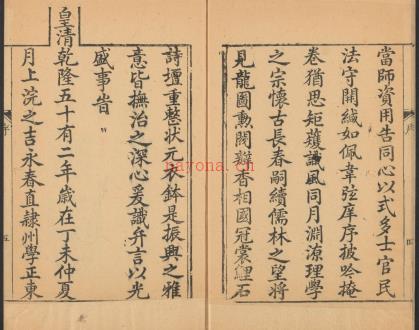 當師資用告同心以式多士官民
法守開緘如佩韋弦庠序披吟掩
卷猶思矩矱議風同月淵源理學
之宗懷古長春嗣續儒林之望將
見龍圖勲閥艱香相國冠裳鯉石
詩壇重整狀元衣鉢是振興之雅
意皆撫治之深心爰識弁言以光
盛事旹
皇清乾隆五十有二年歲在丁未仲夏
月上浣之吉永春直隷州學正東
序
五
nayona.cn